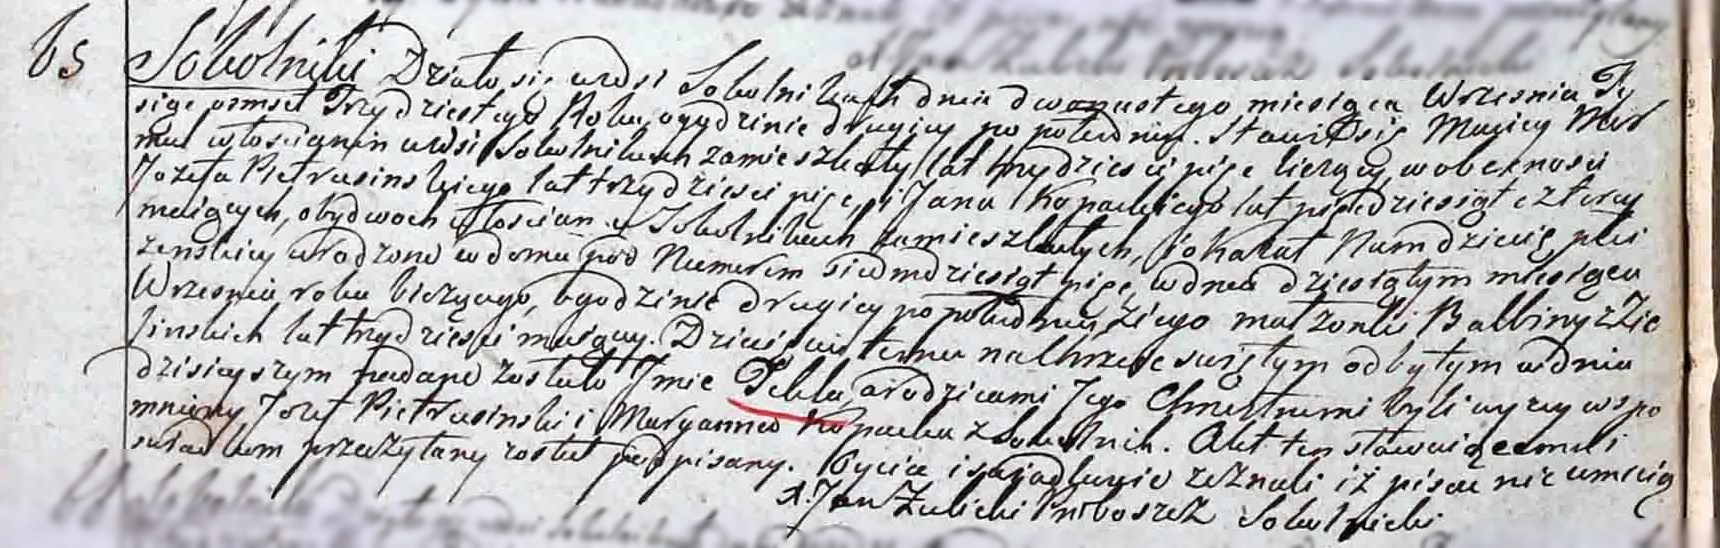 65 Sokolniki Działo się wdsi Sokolnikach dnia dwonastego miesiąca Wrzesnia Ty
siąc osmset Trzydziestego Roku, ogydzinie drugiey po południu. Stawił się Maciey
włoscianin wdsi Sokolnikach zamieszkały lat trzydziesci pięc liczący, wobecnosci
Jozefa Pietrusinskiego lat trzydziesci pięc, i Jana Kopackiego lat pięcdziesiąt cztery
maiących, obydwoch włoscian w Sokolnikach zamieszkałych, Jokazał Nam dziecię płci
zenskiey urodzone wdomu pod Numerem siedmdziesiąt pięc, wdniu dziesiątym miesiąca
Wrzesnia roku bieżącego, ogodzinie drugiey po południu, ziego małzonki Balbiny z Zie
linskich lat trzydziesci maiącey. Dziecięciu temu na Chrzcie swiętym odbytym wdniu
dzisieyszym nadane zostało Jmie Tekla, arodzicami Jego Chrzestnemi byli wyzey wspo
mniony Jozef Pietrusinski i Maryanna Kopacka z Sokolnik. Akt ten stawaiącemu i
swiadkom przeczytany został podpisany. Oyciec i swiadkowie zeznali iż pisac nie umieią
X. Jan Zulicki Proboszcz Sokolnicki